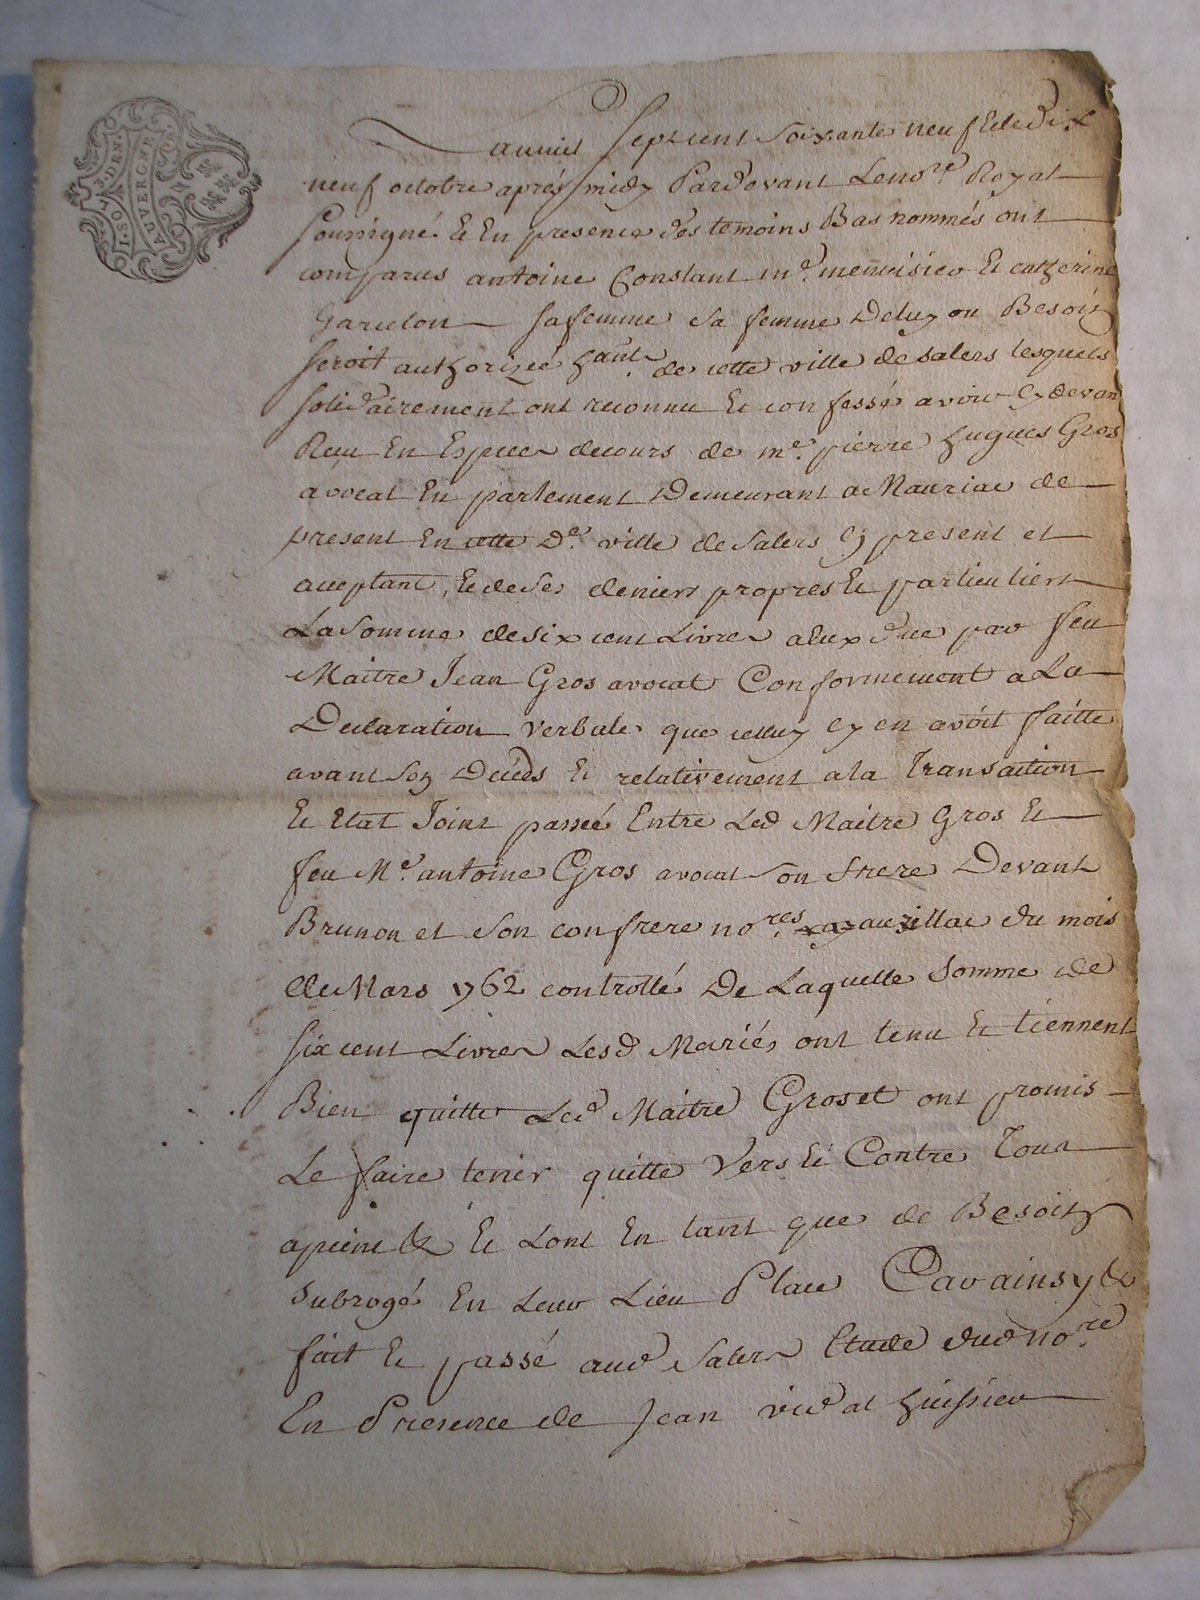 AUVERGNE
1. SO. 3. DEN.
Lan mil sept cent soixante neuf Et le dix
neuf octobre aprés midy Pardevant Le no.re Royal
soussigné Et En presence des temoins Bas nommés ont
comparus antoine Constant m.d menuisier Et catherine
Garcelon sa femme sa femme De luy ou Besoin
seroit authorizée hant. de cette ville de salers lesquels
solidairement ont reconnu Et confessé avoir cy devan
Reçu En Especes de cours de m.e pierre hugues Gros
avocat En parlement Demeurant a Mauriac de
present En cette D.e ville de Salers cy present et
acceptant, Et de Ses deniers propres Et particuliers
La Somme de six cent Livres a Eux due par feu
Maitre Jean Gros avocat Conformement a La
Declaration Verbale que celluy cy en avoit faitte
avant Son Décéds Et relativement a la Transaction
Et Etat Joint passée Entre Led Maitre Gros Et
feu M.e antoine Gros avocat Son frere Devant
Brunon et Son confrere no.res aurillac du mois
de Mars 1762 controllé De Laquelle Somme de
six cent Livres Lesd Mariés ont tenu Et tiennent
Bien quitte Led Maitre Gros et ont promis
Le faire tenir quitte Vers Et Contre Tous
a peine & Et Lont En tant que de Besoin
subrogé En Leur Lieu Place Car ainsy &c
fait Et passé aud Salers Etude dud no.re
En Presence de Jean vidal huissier